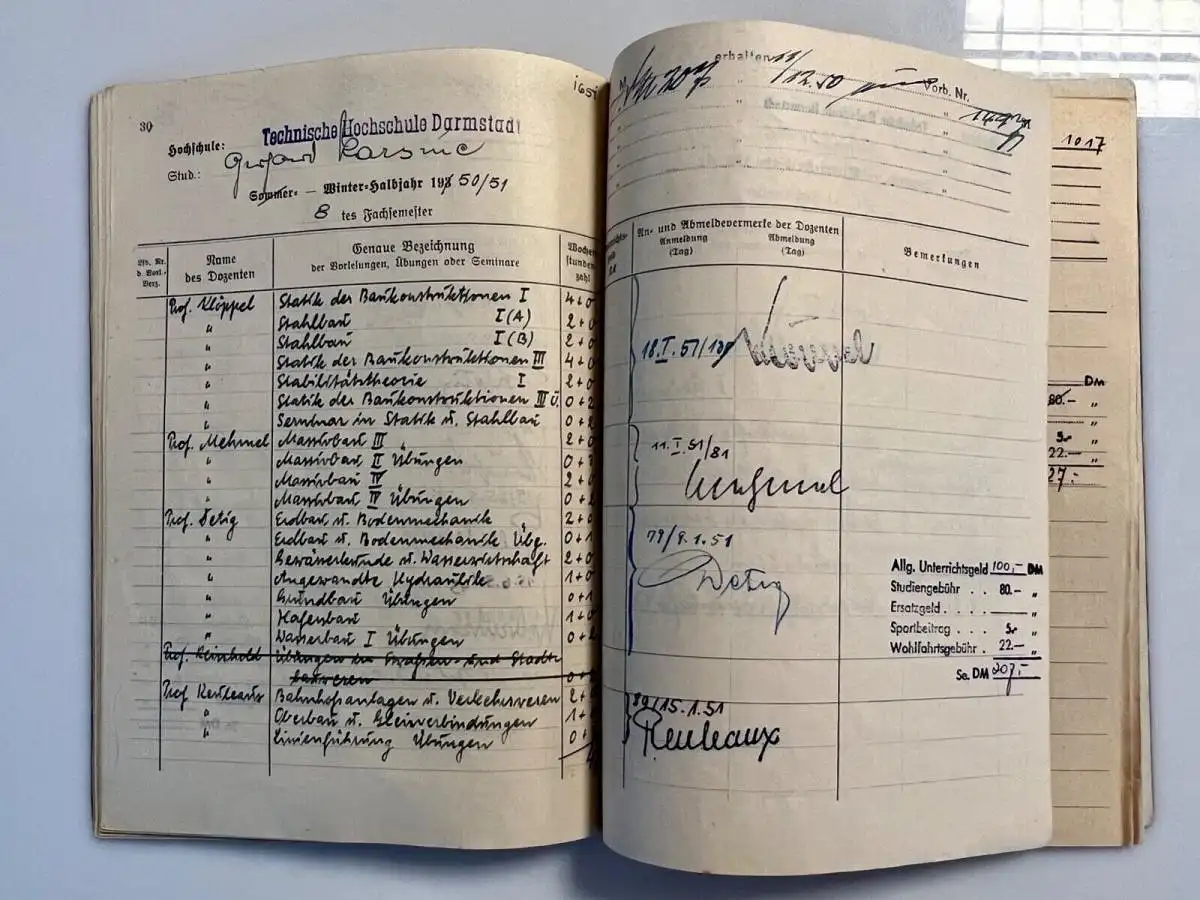 30
Hochschule: Technische Hochschule Darmstadt
Stud.:
Sommer- — Winter-Halbjahr 19 50/51
8 tes Fachsemester
Lfd. Nr. d. Vorl.-Verz.
Name des Dozenten
Genaue Bezeichnung
der Vorlesungen, Übungen oder Seminare
Wochenstundenzahl
Prof. Klöppel Statik der Baukonstruktionen I 4+0
" Stahlbau I(A) 2+0
" Stahlbau I(B) 2+0
" Statik der Baukonstruktionen III 4+0
" Stabilitätstheorie I 2+0
" Statik der Baukonstruktionen III Ü. 0+2
" Seminar in Statik u. Stahlbau 0+2
Prof. Mehmel Massivbau III " 2+0
" Massivbau II Übungen 0+
" Massivbau IV 2+0
" Massivbau IV Übungen 0+2
Prof. Detig Erdbau u. Bodenmechanik " 2+0
" Erdbau u. Bodenmechanik Übg. 0+1
" Gewässerkunde u. Wasserwirtschaft 2+0
" Angewandte Hydraulik 1+0
" Grundbau Übungen 0+1
" Hafenbau 1+0
" Wasserbau I Übungen 0+2
Prof. Reinhold Übungen im Straßen- und Stadt-
bauwesen 0+
Prof. Reuleaux Bahnhofsanlagen u. Verkehrswesen 2+
" Oberbau u. Gleisverbindungen 1+
" Linienführung Übungen 0+
erhalten
11/12.50
Vorb. Nr.
An- und Abmeldevermerke der Dozenten
Anmeldung (Tag)
Abmeldung (Tag)
Bemerkungen
18.I.51/
11.I.51/81
Mehmel
79/9.1.51
Detig
80/15.1.51
Reuleaux
Allg. Unterrichtsgeld 100,- DM
Studiengebühr . . 80.- "
Ersatzgeld . . . "
Sportbeitrag . . . 5.- "
Wohlfahrtsgebühr . 22.- "
Se. DM 207,-
1017
DM
80.- "
5.- "
22.- "
27.-